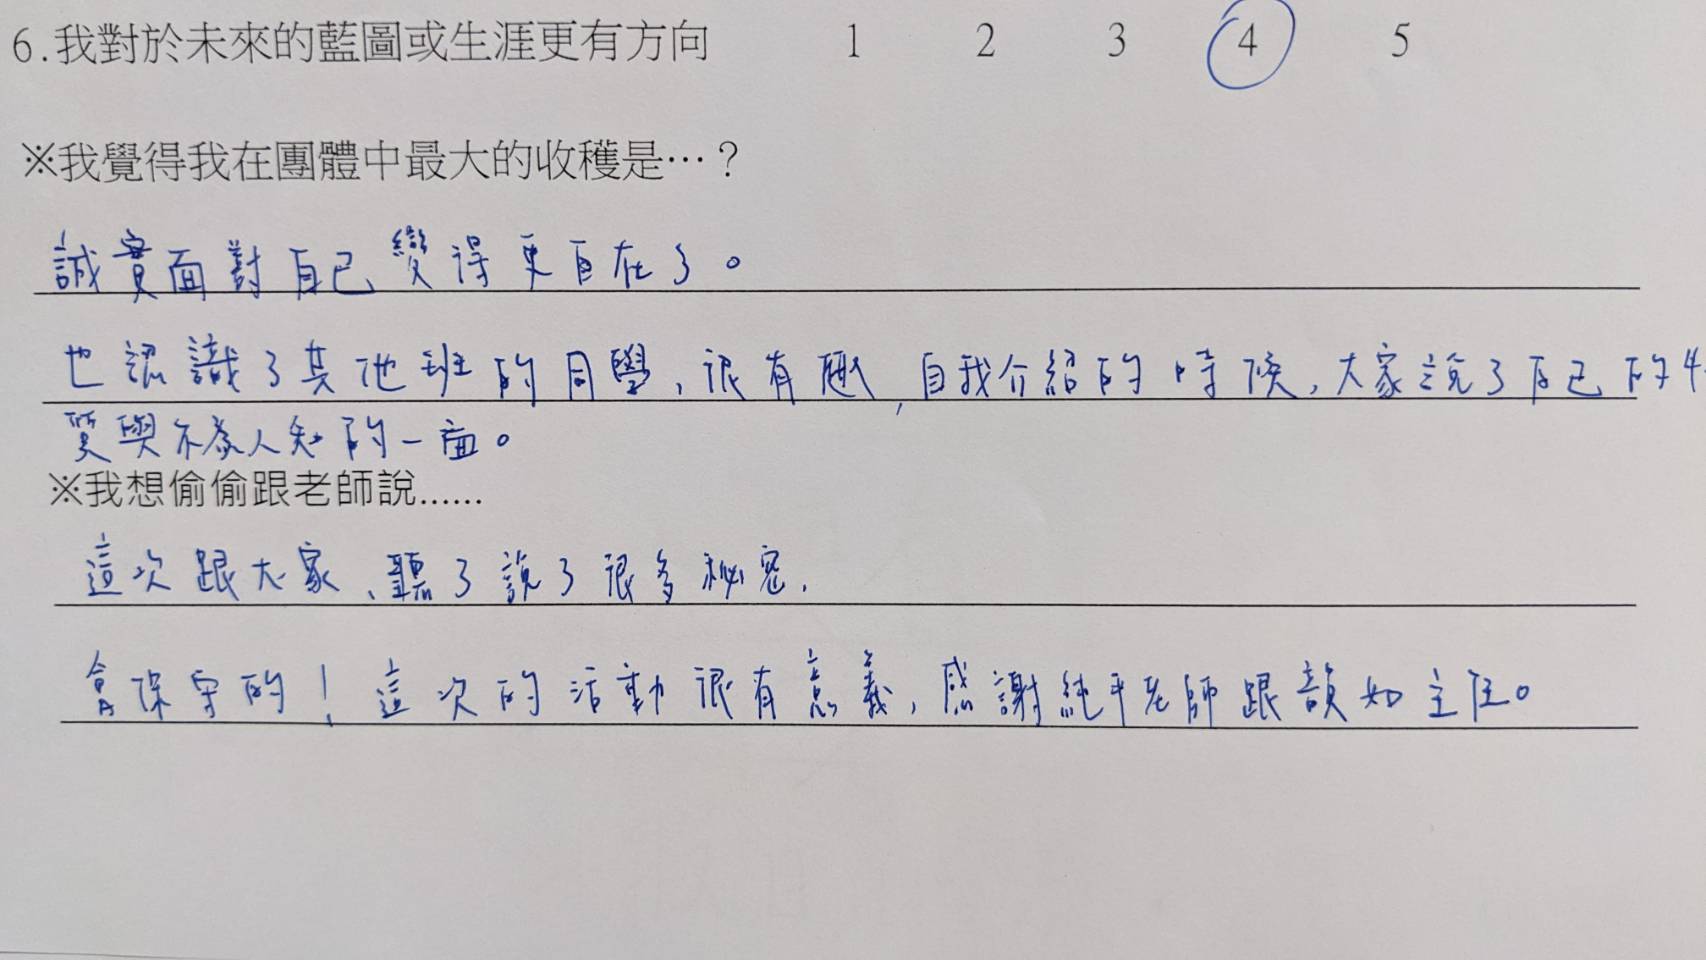 6.我對於未來的藍圖或生涯更有方向 1 2 3 4 5
※我覺得我在團體中最大的收穫是…？
誠實面對自己變得更自在了。
也認識了其他班的同學，很有趣，自我介紹的時候，大家說了自己的特
質與不為人知的一面。
※我想偷偷跟老師說......
這次跟大家、聽了說了很多秘密，
會保守的！這次的活動很有意義，感謝純平老師跟韻如主任。